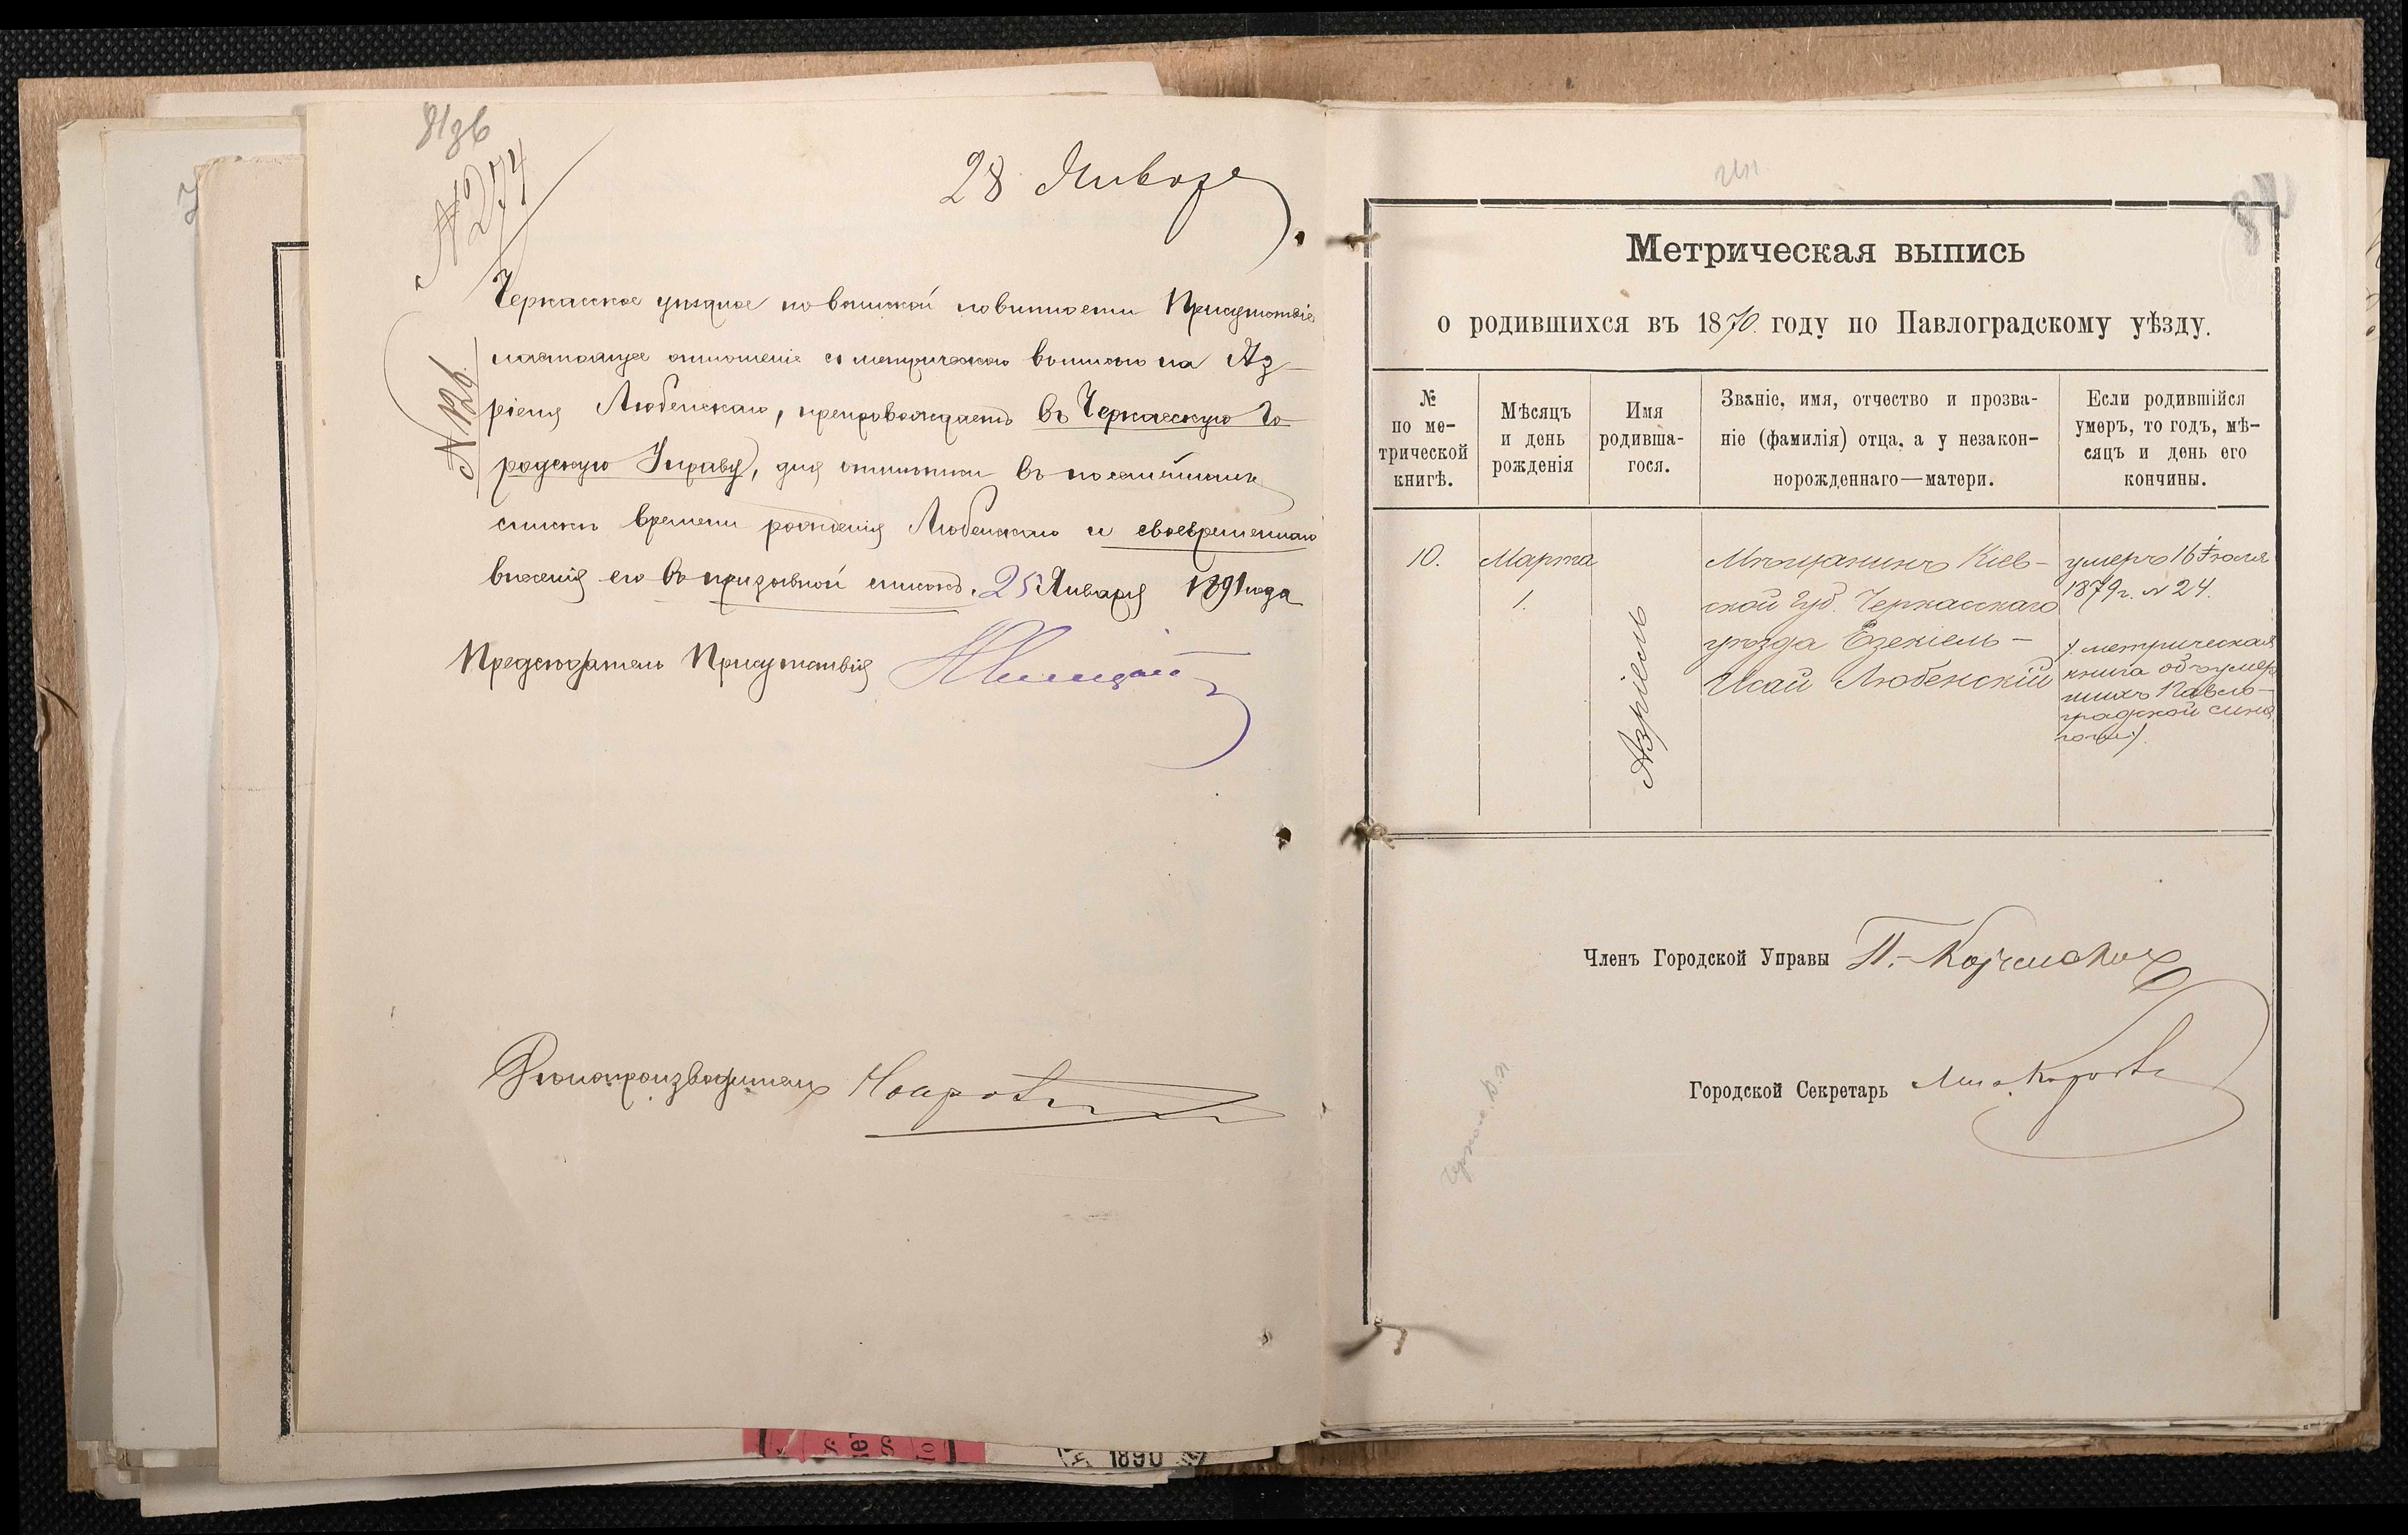 № 274
28 Января
№ 126.
Черкасское уѣздное по воинской повинности Присутствіе
настоящее отношеніе съ метрическою выписью на Аз-
ріеля Любенскаго, препровождаетъ въ Черкасскую Го-
родскую Управу, для отмѣтки въ посемейномъ
спискѣ времени рожденія Любенскаго и своевременнаго
внесенія его въ призывной списокъ. 25 Января 1891 года
Предсѣдатель Присутствія
Дѣлопроизводитель
1890
Метрическая выпись
о родившихся въ 1870 году по Павлоградскому уѣзду.
№
по ме-
трической
книгѣ.
Мѣсяцъ
и день
рожденія
Имя
родивша-
гося.
Званіе, имя, отчество и прозва-
ніе (фамилія) отца, а у незакон-
норожденнаго—матери.
Если родившійся
умеръ, то годъ, мѣ-
сяцъ и день его
кончины.
10.
Марта
1.
Азріель
Мѣщанинъ Кіев-
ской губ. Черкасскаго
уѣзда Езекіель-
Исай Любенскій
умеръ 16 Іюля
1879 г. № 24.
/. метрическая
книга объ умер
шихъ Павло-
градской сина
гоги /.
Членъ Городской Управы
Городской Секретарь